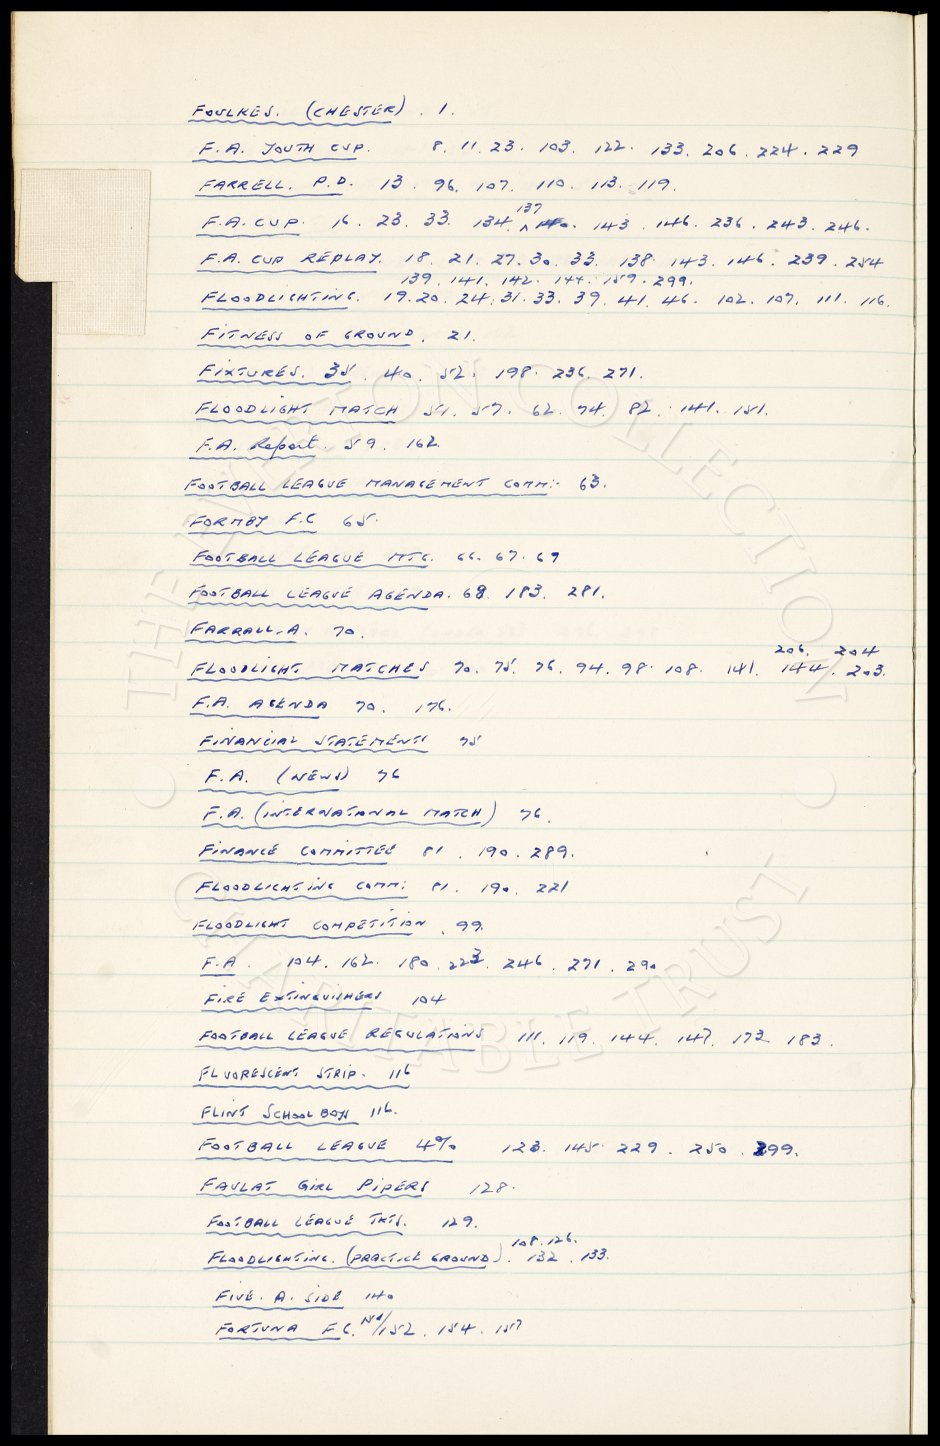 FOULKES. (CHESTER). 1.
F.A. YOUTH CUP. 8. 11. 23. 103. 122. 133. 206. 224. 229
FARRELL. P.D. 13. 96. 107. 110. 113. 119.
137
F.A. CUP. 16. 23. 33. 134. 140. 143. 146. 236. 243. 246.
F.A. CUP REPLAY. 18. 21. 27. 30. 33. 138. 143. 146. 239. 254
139. 141. 142. 144. 159. 299.
FLOODLIGHTING. 19. 20. 24. 31. 33. 39. 41. 46. 102. 107. 111. 116.
FITNESS OF GROUND. 21.
FIXTURES. 35. 40. 52. 198. 236. 271.
FLOODLIGHT MATCH 51. 57. 62. 74. 82. 141. 151.
F.A. Report. 59. 162.
FOOTBALL LEAGUE MANAGEMENT COMM:- 63.
FORMBY F.C 65.
FOOTBALL LEAGUE MTG. 66. 67. 69
FOOTBALL LEAGUE AGENDA. 68. 183. 281.
FARRALL. A. 70.
206. 204
FLOODLIGHT MATCHES 70. 75. 76. 94. 98. 108. 141. 144. 203.
F.A. AGENDA 70. 176.
FINANCIAL STATEMENTS 75
F.A. (NEWS) 76
F.A. (INTERNATIONAL MATCH) 76.
FINANCE COMMITTEE 81. 190. 289.
FLOODLIGHTING COMM: 81. 190. 221
FLOODLIGHT COMPETITION. 99.
F.A. 104. 162. 180. 223. 246. 271. 290
FIRE EXTINGUISHERS 104
FOOTBALL LEAGUE REGULATIONS 111. 119. 144. 147. 173 183.
FLUORESCENT STRIP. 116
FLINT SCHOOL BOYS 116.
FOOTBALL LEAGUE 4% 123. 145. 229. 250. 299.
FAVLAT GIRL PIPERS 128.
FOOTBALL LEAGUE TKTS. 129.
108. 126.
FLOODLIGHTING. (PRACTICE GROUND). 132. 133.
FIVE. A. SIDE 140
FORTUNA F.C. 152. 154. 157
THE EVERTON COLLECTION
CHARITABLE TRUST